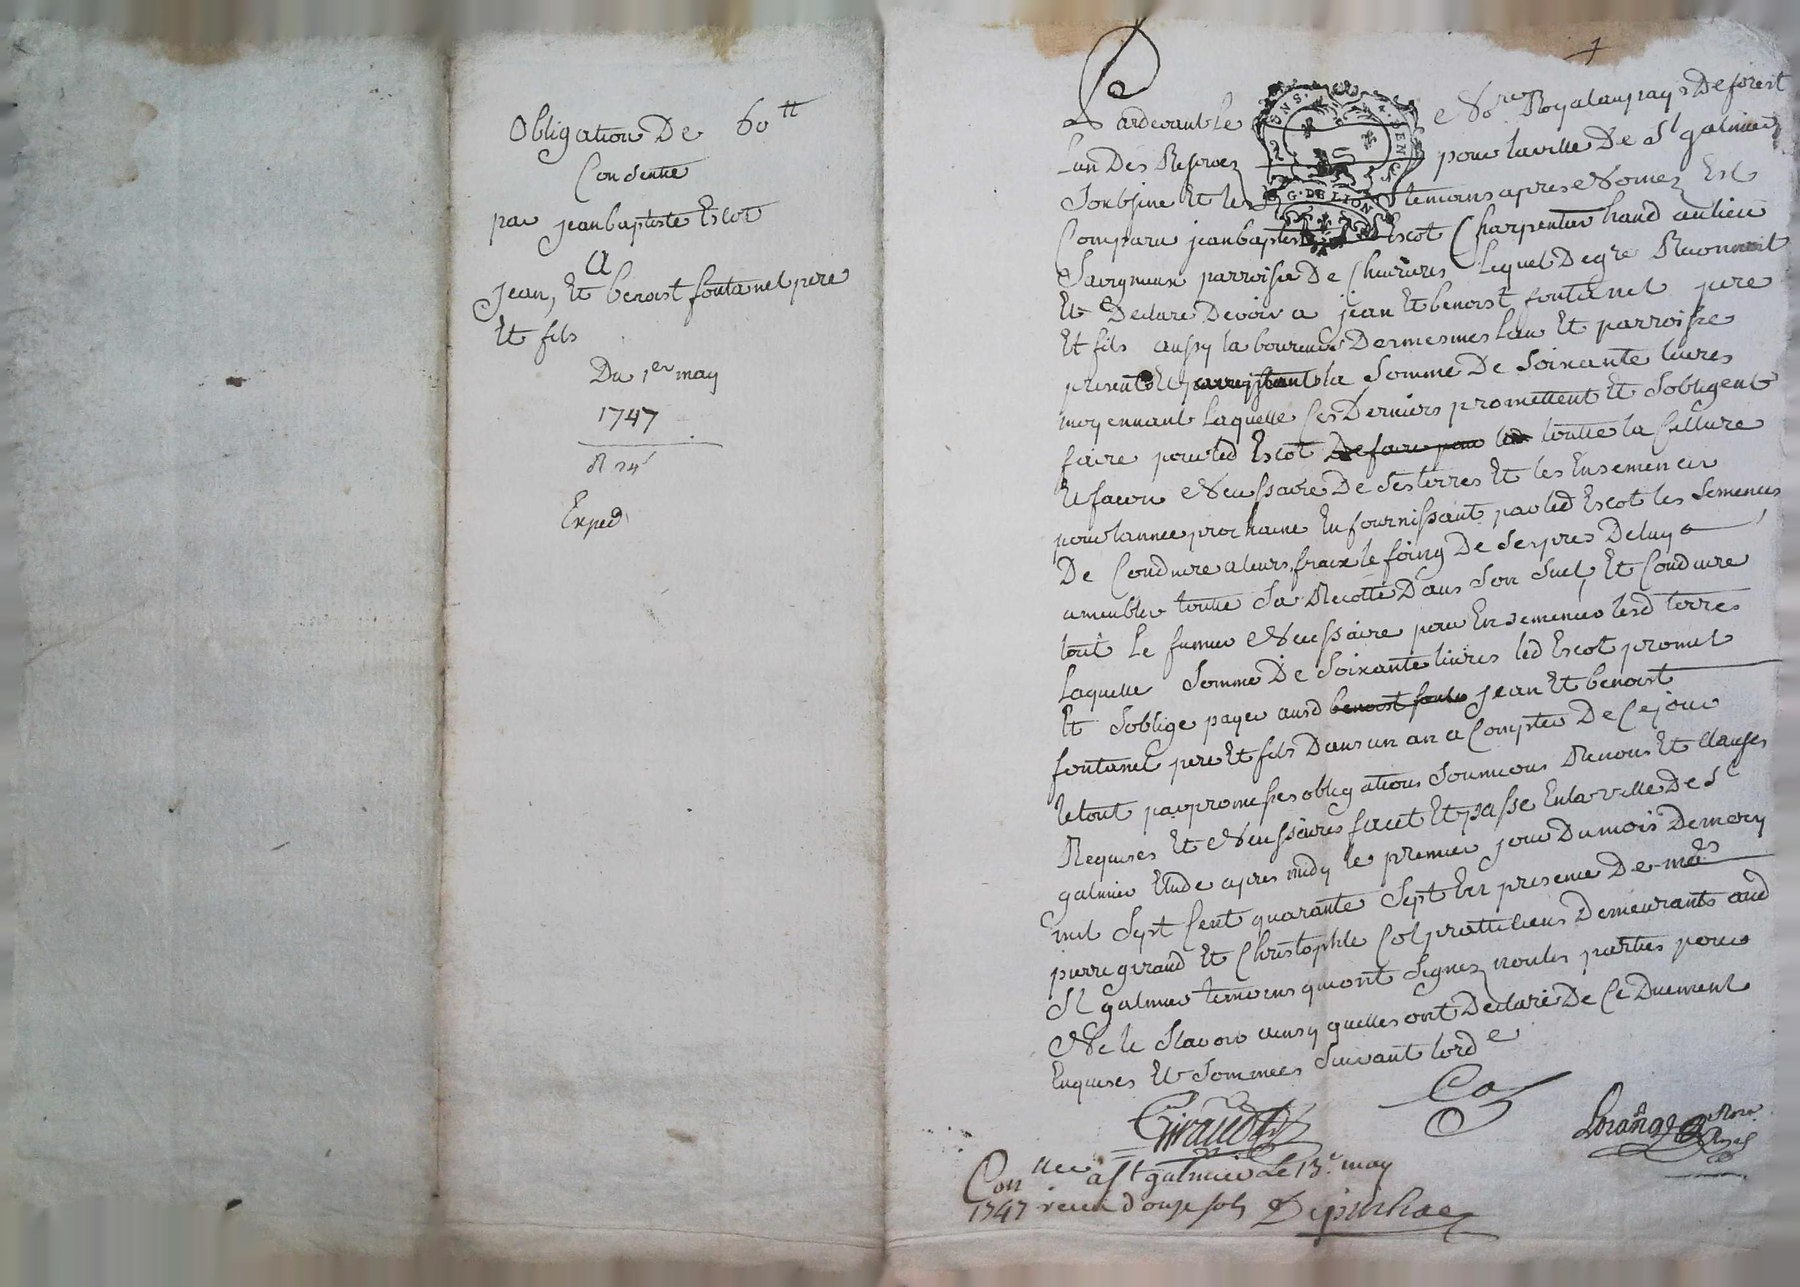 Obligation De 60tt
Consentie
par jeanbaptiste Escot
A
Jean, Et benoist fontanel pere
Et fils
Du 1er may
1747
R 24s
Exped
Pardevant le Nore Royal au pays De forest
Lun Des Reservez pour la ville De St galmier
Soubsine Et les temoins apres Nomez Est
Comparu jean baptiste Escot Charpentier hand au lieu
Savigneux parroisse De Chevrieres Lequel De gre Reconnoit
Et Declare Devoir a jean Et benoist fontanel pere
Et fils aussy laboureurs Dermesmes lieu Et parroisse
presents Et la Somme De Soixante livres
moyennant Laquelle Ces Derniers promettent Et Sobligent
faire pour led Escot De faire pour led toutte la Culture
Et facon Necessaire De Ses terres Et les Ensemencer
pour lannee prochaine En fournissant par led Escot les Semences
De Conduire a leurs fraix le foing De Se pres De luy
ameubler toutte Sa Recolte Dans Son Suel, Et Conduire
tout Le fumier Necessaire pour Ensemencer lesd terres
Laquelle Somme De Soixante livres led Escot promet
Et Soblige payer ausd benoist fonta Jean Et benoist
fontanel pere Et fils Dans un an a Compter De Ce jour
le tout par promesses obligations Soumions Renons Et Clauses
Requises Et Necessaires fait Et passe En la ville De St
galmier Etude apres midy le premier jour Du mois De may
mil Sept Cent quarante Sept En presence De mes
pierre giraud Et Christophle Col pratticiens Demeurants aud
St galmier temoins qui ont Signez non les parties pour
Ne le Scavoir ainsy quelles ont Declaré De Ce Duement
Enquises Et Sommees Suivant lorde
Giraud Col
Conllee a St galmier Le 13e may
1747 receu douze sols